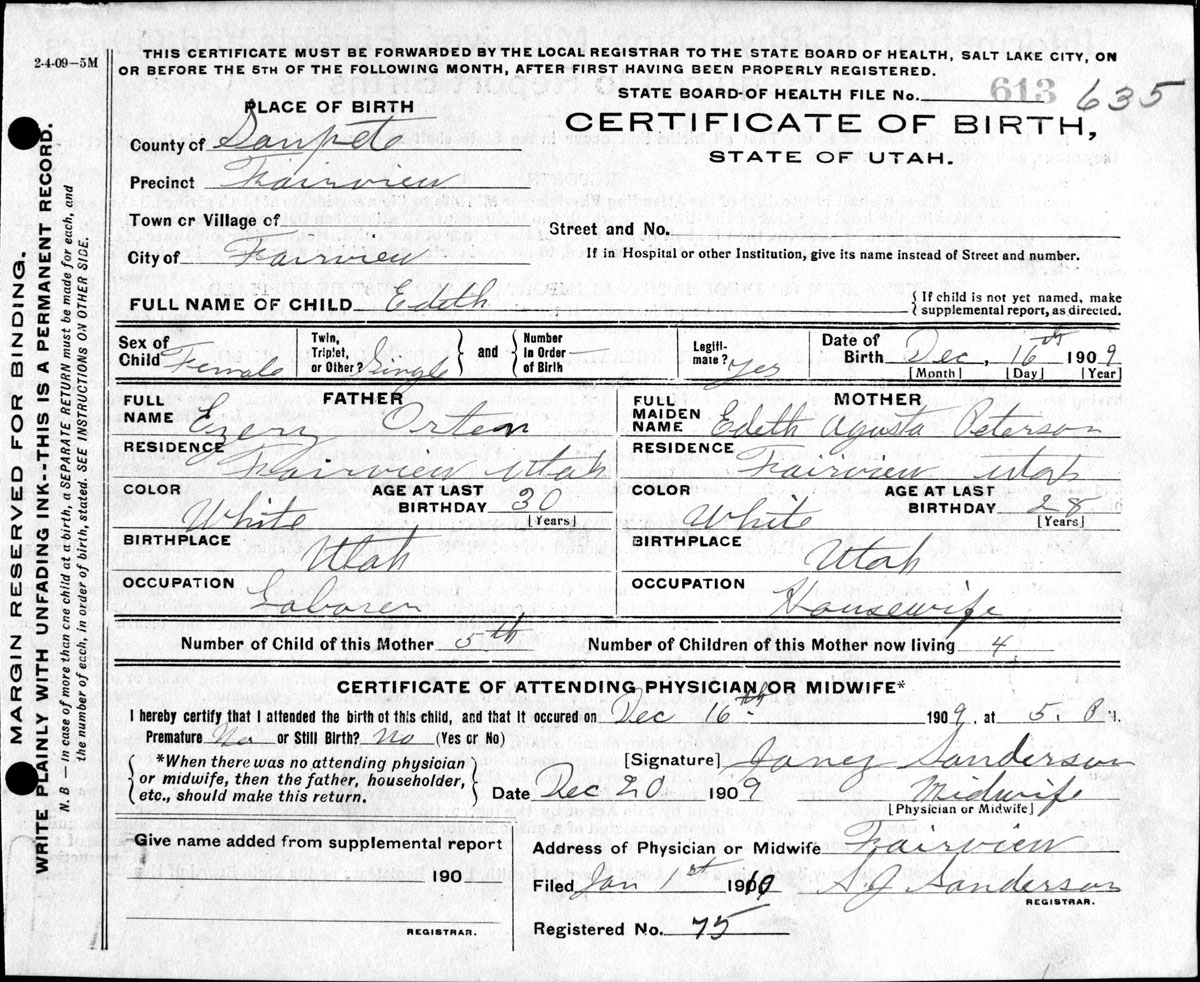 2-4-09—5M
THIS CERTIFICATE MUST BE FORWARDED BY THE LOCAL REGISTRAR TO THE STATE BOARD OF HEALTH, SALT LAKE CITY, ON
OR BEFORE THE 5TH OF THE FOLLOWING MONTH, AFTER FIRST HAVING BEEN PROPERLY REGISTERED.
STATE BOARD OF HEALTH FILE No. 613 635
PLACE OF BIRTH
CERTIFICATE OF BIRTH,
STATE OF UTAH.
County of Sanpete
Precinct Fairview
Town or Village of
Street and No.
City of Fairview
If in Hospital or other Institution, give its name instead of Street and number.
FULL NAME OF CHILD Edeth
{ If child is not yet named, make
supplemental report, as directed.
Sex of Child Female
Twin, Triplet, or Other? Single } and { Number In Order of Birth
Legiti-mate? Yes
Date of Birth Dec, 16th 1909
[Month] [Day] [Year]
FATHER
FULL NAME Ezery Orten
RESIDENCE Fairview Utah
COLOR White
AGE AT LAST BIRTHDAY 30 [Years]
BIRTHPLACE Utah
OCCUPATION Laborer
MOTHER
FULL MAIDEN NAME Edeth Agusta Peterson
RESIDENCE Fairview Utah
COLOR White
AGE AT LAST BIRTHDAY 28 [Years]
BIRTHPLACE Utah
OCCUPATION Housewife
Number of Child of this Mother 5th Number of Children of this Mother now living 4.
CERTIFICATE OF ATTENDING PHYSICIAN OR MIDWIFE*
I hereby certify that I attended the birth of this child, and that it occured on Dec 16th. 1909, at 5. P M.
Premature No or Still Birth? No (Yes or No)
{ *When there was no attending physician
or midwife, then the father, householder,
etc., should make this return. }
[Signature] Janey Sanderson
Date Dec 20 1909 Midwife
[Physician or Midwife]
Give name added from supplemental report
190
REGISTRAR.
Address of Physician or Midwife Fairview
Filed Jan 1st 1910 A J Sanderson
REGISTRAR.
Registered No. 75
MARGIN RESERVED FOR BINDING.
WRITE PLAINLY WITH UNFADING INK--THIS IS A PERMANENT RECORD.
N. B — In case of more than one child at a birth, a SEPARATE RETURN must be made for each, and
the number of each, in order of birth, stated. SEE INSTRUCTIONS ON OTHER SIDE.